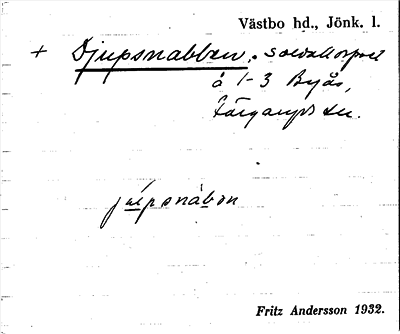 Västbo hd., Jönk. l.
+ Djupsnabben. soldattorpet
å 1-3 Byås,
Färgaryds sn.
jupsnabon
Fritz Andersson 1932.